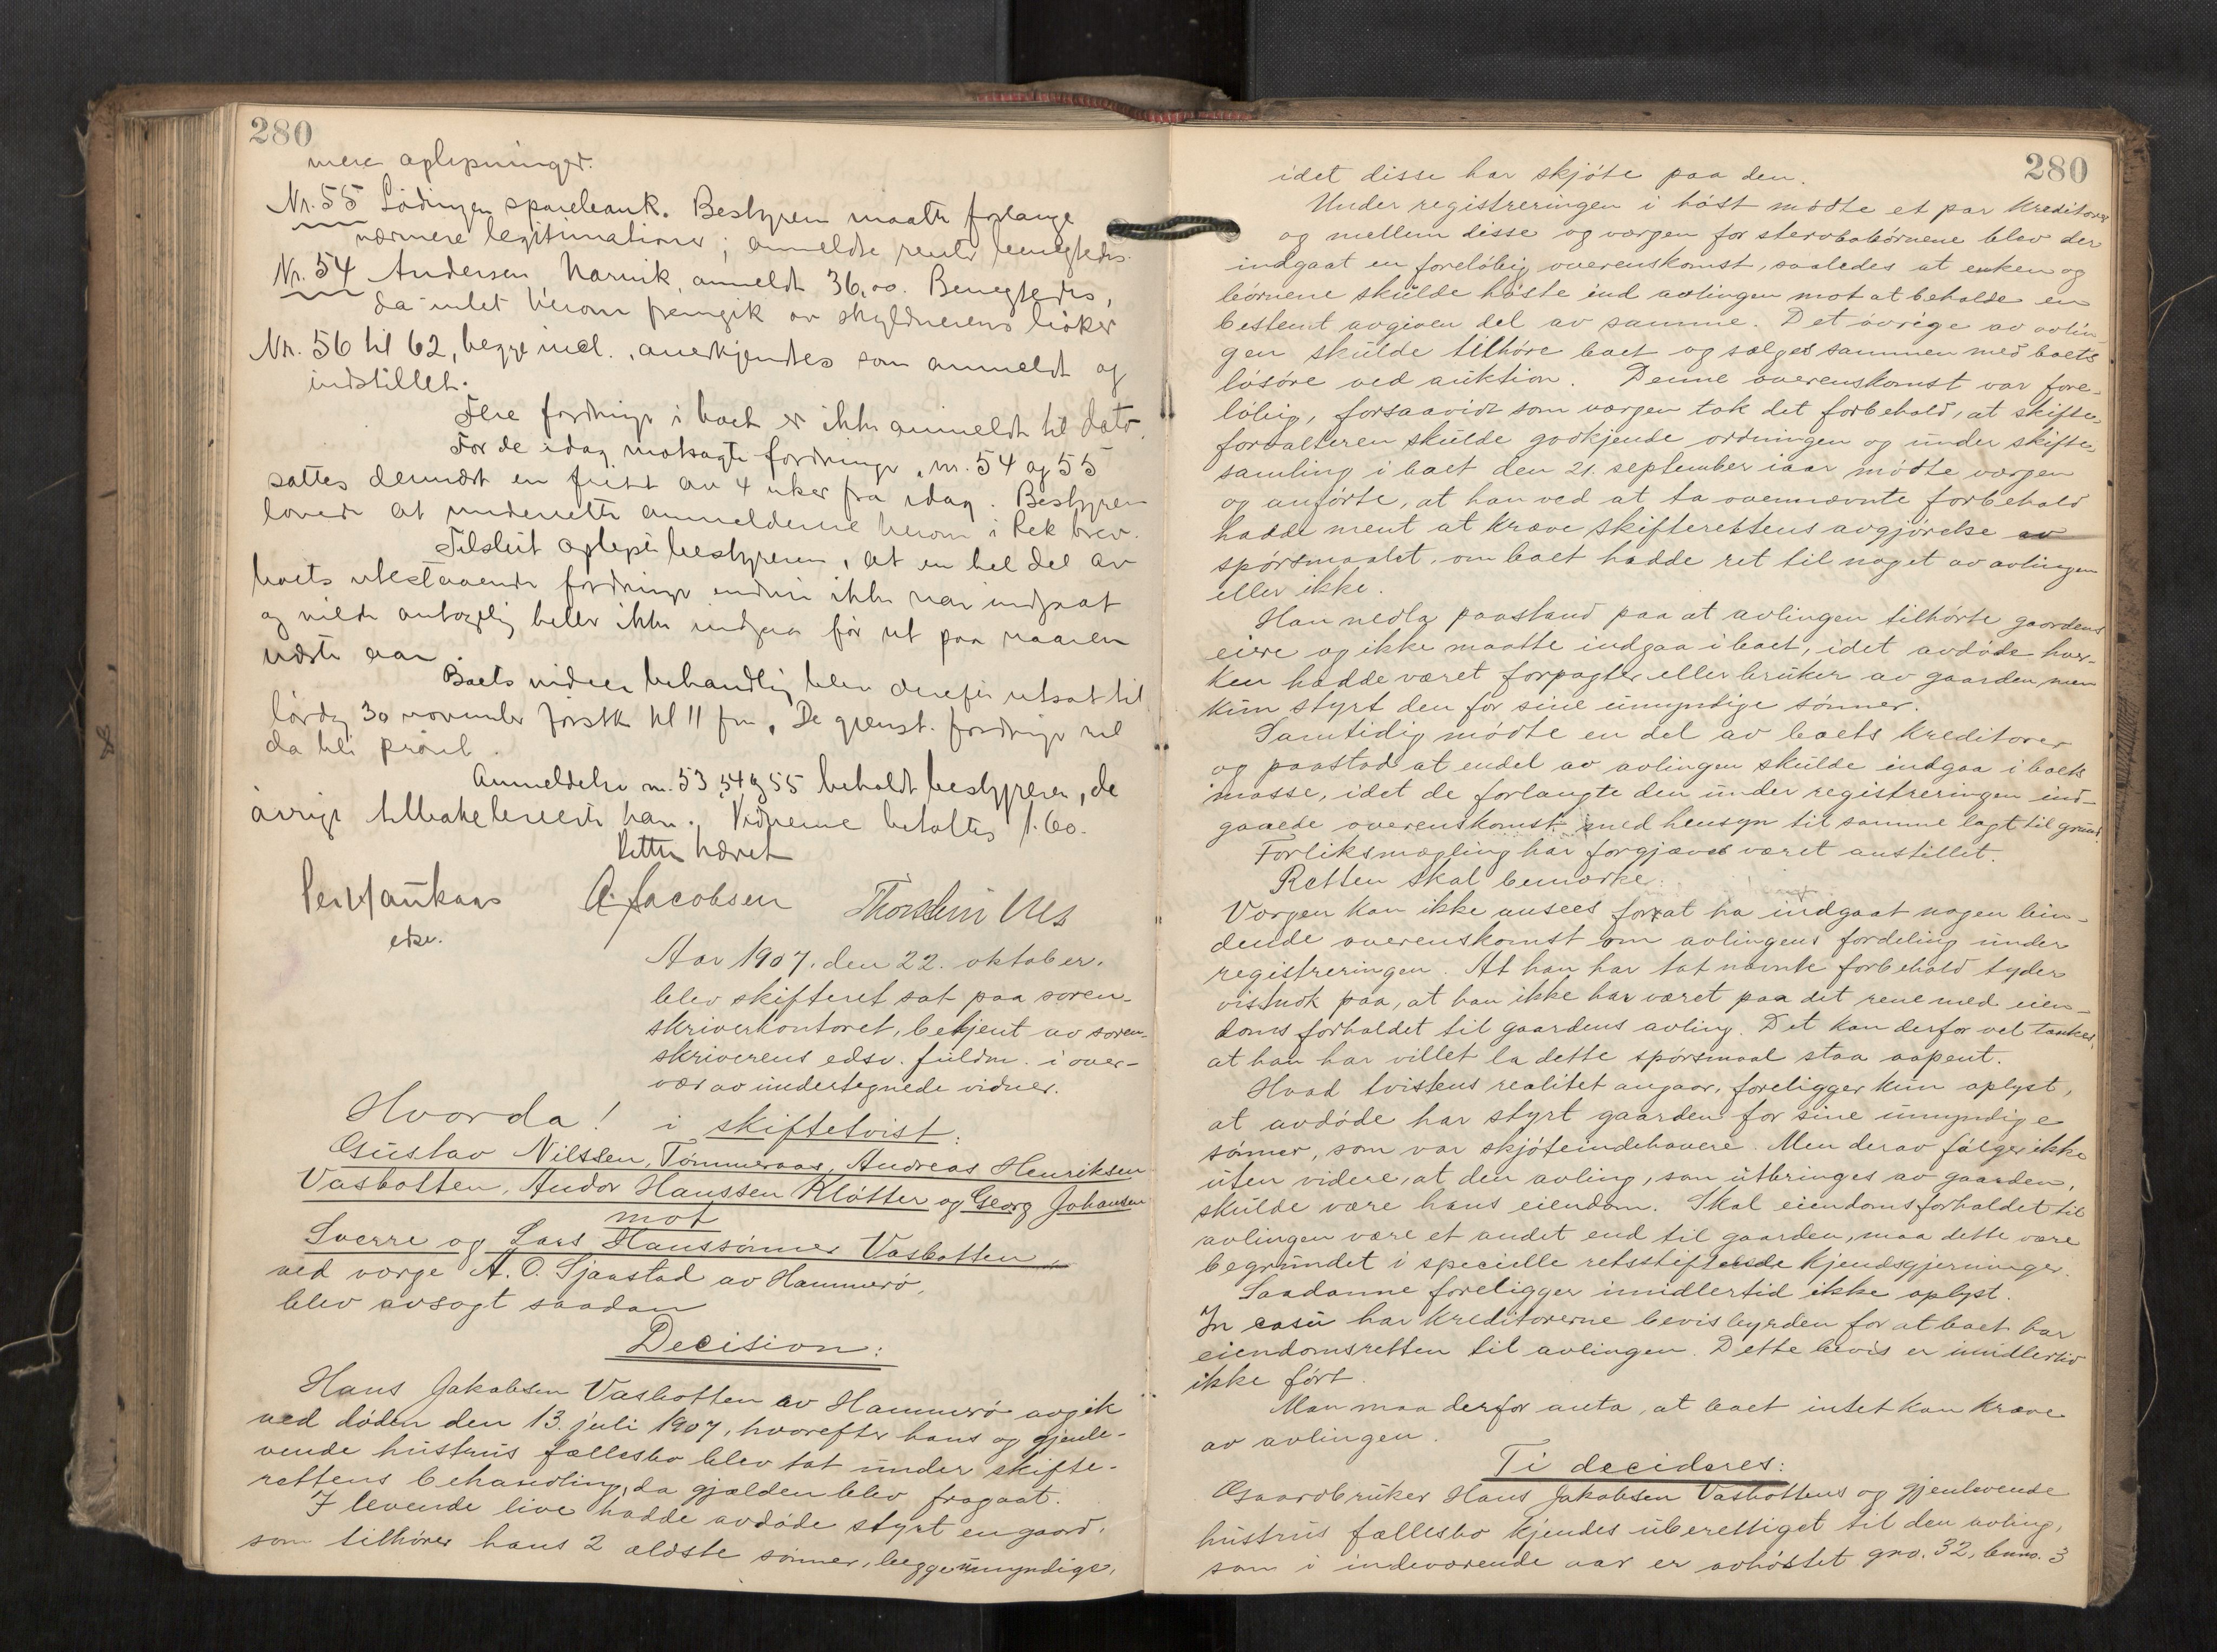 280
mere oplysninger.
Nr. 55 Lødingen sparebank. Bestyreren maatte forlange
nærmere legitimationer; anmeldte renter benegtedes.
Nr. 54 Andersen Narvik, anmeldt 36,00. Benegtedes,
da intet herom fremgik av skyldnerens bøker
Nr. 56 til 62, begge incl., anerkjendtes som anmeldt og
indstillet.
Flere fordringer i boet er ikke anmeldt til dato.
For de idag motsagte fordringer, nr. 54 og 55
sattes dernæst en frist av 4 uker fra idag. Bestyreren
lovede at underrette anmelderne herom i Rek brev.
Tilslut oplyste bestyreren, at en hel del av
boets utestaaende fordringer endnu ikke var indgaat
og vilde antagelig heller ikke indgaa før ut paa vaaren
næste aar.
Boets videre behandling blev derefter utsat til
lørdag 30 november førstk kl 11 fm. De gjenst. fordringer vil
da bli prøvet.
Anmeldelse nr. 53, 54 og 55 beholdt bestyreren, de
øvrige tilbakeleverte han. Vidnerne betaltes 1.60.
Retten hævet
Per Haukaas A. Jacobsen Thorstein
etse.
Aar 1907. den 22. oktober.
blev skifteret sat paa soren-
skriverkontoret, betjent av soren-
skriverens edsv. fuldm. i over-
vær av undertegnede vidner.
Hvorda! i skiftetvist:
Gustav Nilssen, Tømmeraas, Andreas Henriksen
Vasbotten, Andor Hanssen Kløtter og Georg Johansen
mot
Sverre og Lars Hanssønner Vasbotten,
ved værge A. O. Sjaastad av Hammerø,
blev avsagt saadan
Decision:
Hans Jakobsen Vasbotten av Hammerø avgik
ved døden den 13. juli 1907, hvorefter hans og gjenle-
vende hustrus fællesbo blev tat under skifte-
rettens behandling, da gjælden blev fragaat.
I levende live hadde avdøde styrt en gaard,
som tilhører hans 2 ældste sønner, begge umyndige,
280
idet disse har skjøte paa den.
Under registreringen i høst mødte et par kreditorer
og mellem disse og værgen for stervbobørnene blev der
indgaat en foreløbig overenskomst, saaledes at enken og
børnene skulde høste ind avlingen mot at beholde en
bestemt avgiven del av samme. Det øvrige av avlin-
gen skulde tilhøre boet og sælges sammen med boets
løsøre ved auktion. Denne overenskomst var fore-
løbig, forsaavidt som værgen tok det forbehold, at skifte-
forvalteren skulde godkjende ordningen og under skifte-
samling i boet den 21. september iaar mødte værgen
og anførte, at han ved at ta ovennævnte forbehold
hadde ment at kræve skifterettens avgjørelse av
spørsmaalet, om boet hadde ret til noget av avlingen
eller ikke.
Han nedla paastand paa at avlingen tilhørte gaardens
eiere og ikke maatte indgaa i boet, idet avdøde hver-
ken hadde været forpagter eller bruker av gaarden, men
kun styrt den for sine umyndige sønner.
Samtidig mødte en del av boets kreditorer
og paastod at endel av avlingen skulde indgaa i boets
masse, idet de forlangte den under registreringen ind-
gaaede overenskomst med hensyn til samme lagt til grund.
Forliksmægling har forgjæves været anstillet.
Retten skal bemærke:
Værgen kan ikke ansees for at ha indgaat nogen bin-
dende overenskomst om avlingens fordeling under
registreringen. At han har tat nævnte forbehold tyder
vistnok paa, at han ikke har været paa det rene med eien-
domsforholdet til gaardens avling. Det kan derfor vel tænkes,
at han har villet la dette spørsmaal staa aapent.
Hvad tvistens realitet angaar, foreligger kun oplyst,
at avdøde har styrt gaarden for sine umyndige
sønner, som var skjøteindehavere. Men derav følger ikke
uten videre, at den avling, som utbringes av gaarden,
skulde være hans eiendom. Skal eiendomsforholdet til
avlingen være et andet end til gaarden, maa dette være
begrundet i specielle retsstiftende kjendsgjerninger.
Saadanne foreligger imidlertid ikke oplyst.
In casu har kreditorerne bevisbyrden for at boet har
eiendomsretten til avlingen. Dette bevis er imidlertid
ikke ført.
Man maa derfor anta, at boet intet kan kræve
av avlingen.
Ti decideres:
Gaardbruker Hans Jakobsen Vasbottens og gjenlevende
hustrus fællesbo kjendes uberettiget til den avling,
som i indeværende aar er avhøstet gno. 32, bruno. 3